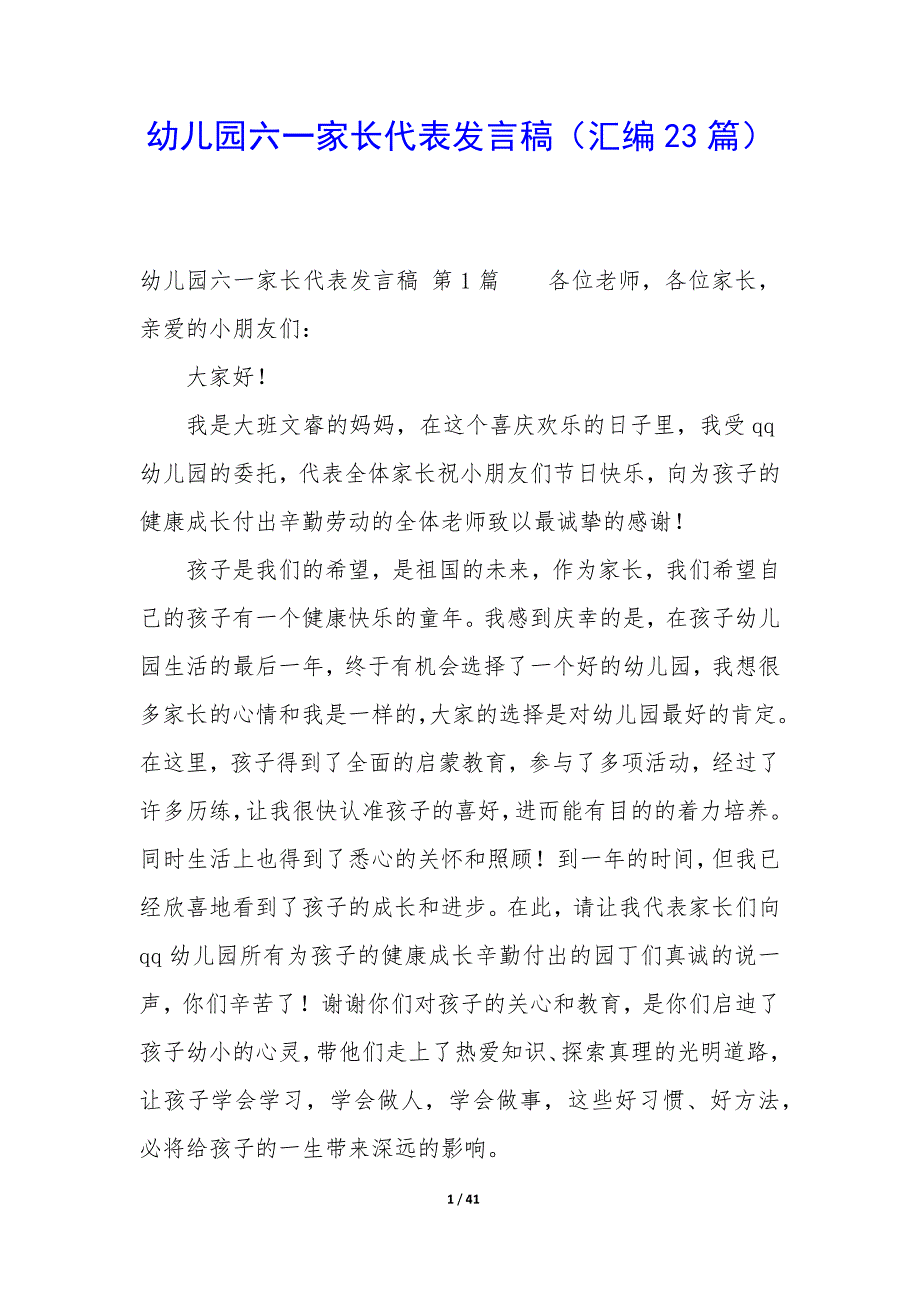 幼儿园六一家长代表发言稿（汇编 23 篇）
幼儿园六一家长代表发言稿 第 1 篇　　各位老师，各位家长，
亲爱的小朋友们：
大家好！
我是大班文睿的妈妈，在这个喜庆欢乐的日子里，我受 qq
幼儿园的委托，代表全体家长祝小朋友们节日快乐，向为孩子的
健康成长付出辛勤劳动的全体老师致以最诚挚的感谢！
孩子是我们的希望，是祖国的未来，作为家长，我们希望自
己的孩子有一个健康快乐的童年。我感到庆幸的是，在孩子幼儿
园生活的最后一年，终于有机会选择了一个好的幼儿园，我想很
多家长的心情和我是一样的，大家的选择是对幼儿园最好的肯定。
在这里，孩子得到了全面的启蒙教育，参与了多项活动，经过了
许多历练，让我很快认准孩子的喜好，进而能有目的的着力培养。
同时生活上也得到了悉心的关怀和照顾！到一年的时间，但我已
经欣喜地看到了孩子的成长和进步。在此，请让我代表家长们向
qq 幼儿园所有为孩子的健康成长辛勤付出的园丁们真诚的说一
声，你们辛苦了！谢谢你们对孩子的关心和教育，是你们启迪了
孩子幼小的心灵，带他们走上了热爱知识、探索真理的光明道路，
让孩子学会学习，学会做人，学会做事，这些好习惯、好方法，
必将给孩子的一生带来深远的影响。
1 / 41